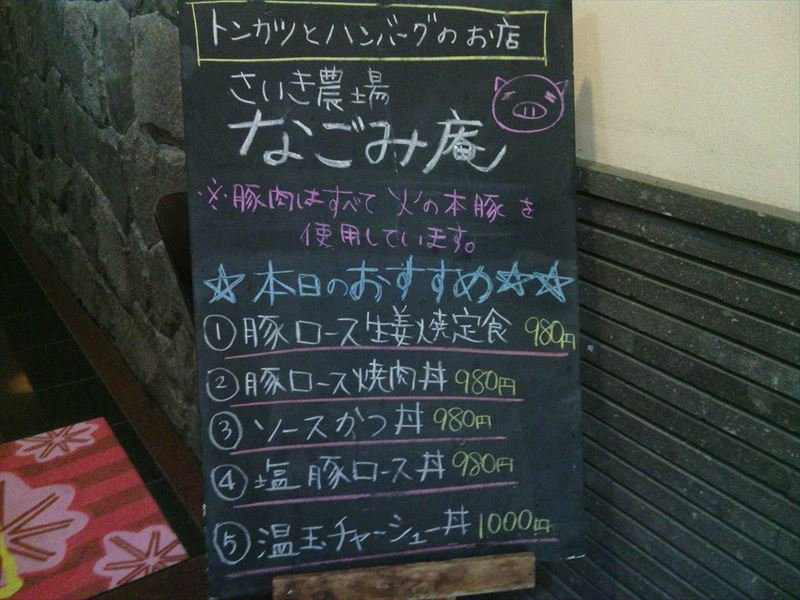 トンカツとハンバーグのお店
さいき農場
なごみ庵
※豚肉はすべて火の本豚を
使用しています。
☆本日のおすすめ☆☆
①豚ロース生姜焼定食 980円
②豚ロース焼肉丼 980円
③ソースかつ丼 980円
④塩豚ロース丼 980円
⑤温玉チャーシュー丼 1000円